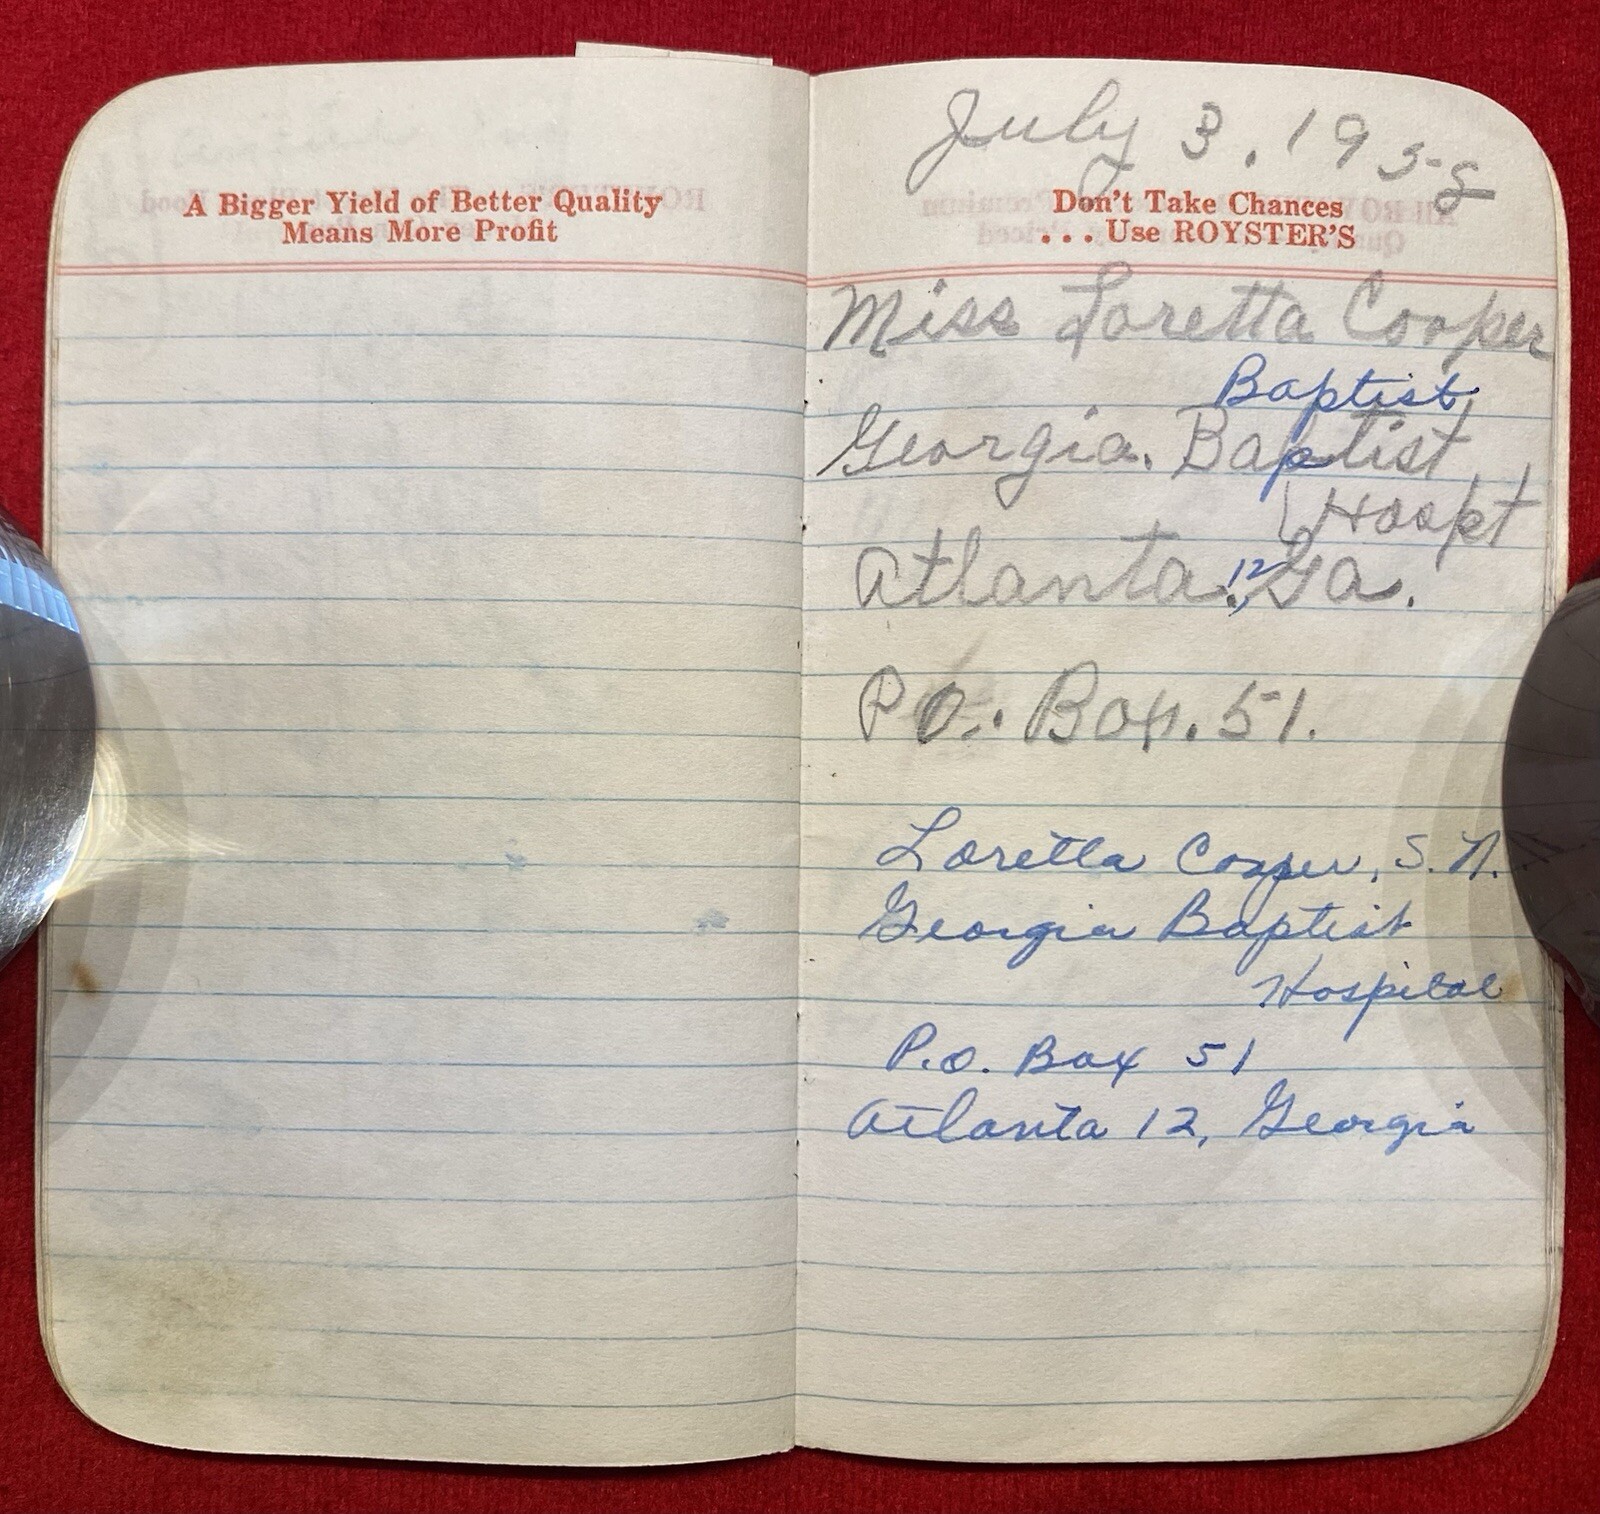 A Bigger Yield of Better Quality
Means More Profit
July 3. 1958
Don't Take Chances
. . . Use ROYSTER'S
Miss Loretta Cooper
Baptist
Georgia. Baptist
Hospt
Atlanta. 12, Ga.
P.O. Box. 51.
Loretta Cooper, S.N.
Georgia Baptist
Hospital
P.O. Box 51
Atlanta 12, Georgia